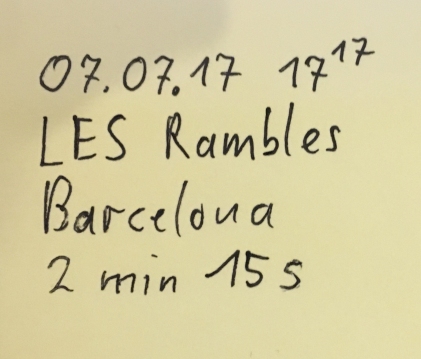 07.07.17 17¹⁷
LES Rambles
Barcelona
2 min 15 s